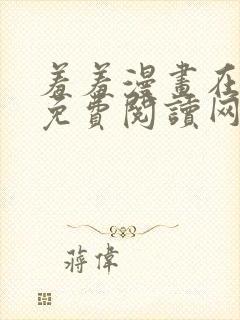 羞羞漫畫在
免費閱讀网
蔣偉